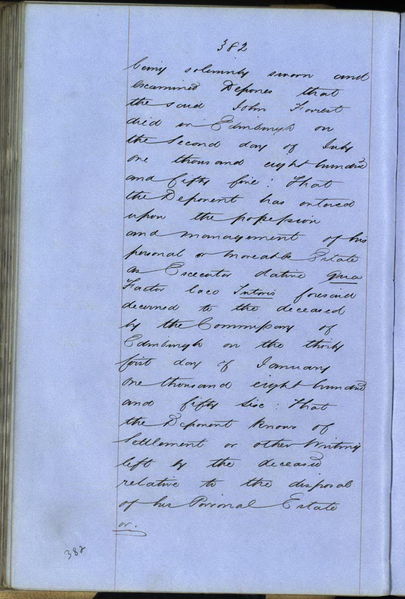 382
being solemnly sworn and
examined Depones that
the said John Forrest
died in Edinburgh on
the Second day of July
one thousand eight hundred
and fifty five: That
the Deponent has entered
upon the possession
and management of his
personal or moveable Estate
as Executor dative qua
Factor loco Tutoris foresaid
decerned to the deceased
by the Commissary of
Edinburgh on the thirty
first day of January
one thousand eight hundred
and fifty six: That
the Deponent knows of
Settlement or other Writing
left by the deceased
relative to the disposal
of his Personal Estate
or.
382